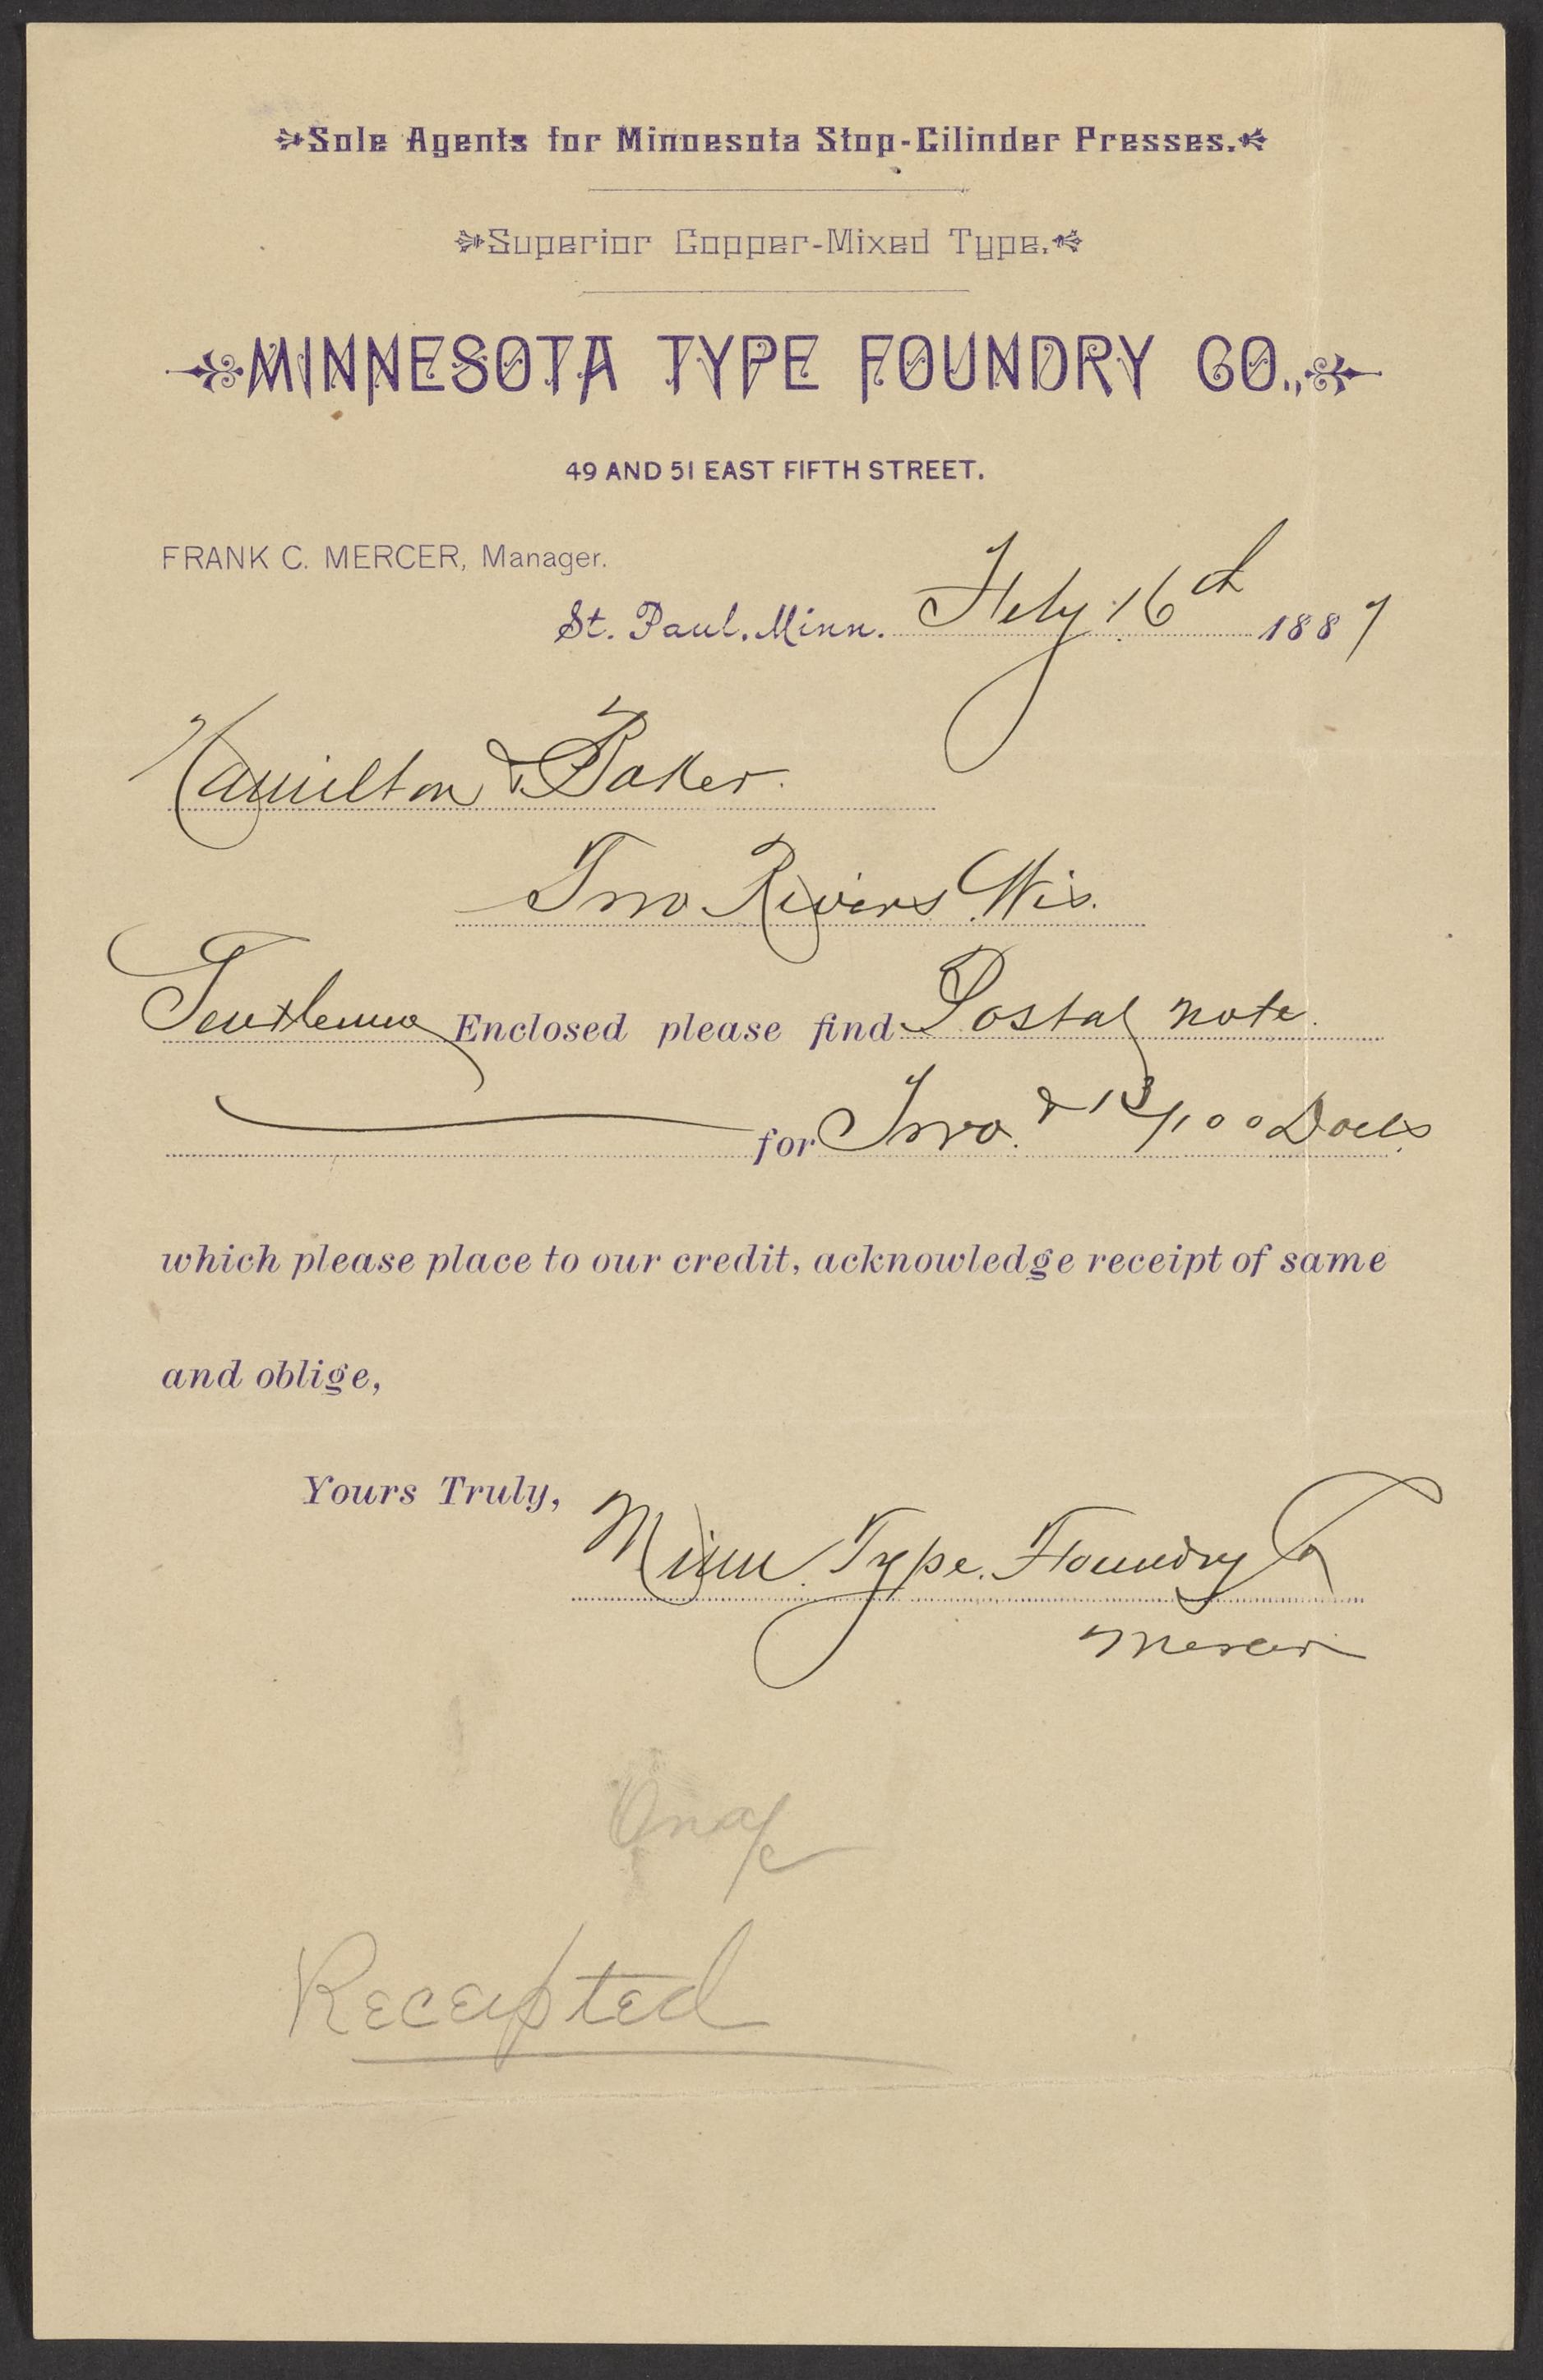 Sole Agents for Minnesota Stop-Cilinder Presses.
Superior Copper-Mixed Type.
MINNESOTA TYPE FOUNDRY CO.,
49 AND 51 EAST FIFTH STREET.
FRANK C. MERCER, Manager.
St. Paul. Minn. Feby 16th 1887
Hamilton & Baker.
Two Rivers Wis.
Gentlemen Enclosed please find Postal note.
for Two. & 13/100 Dolls
which please place to our credit, acknowledge receipt of same
and oblige,
Yours Truly,
Minn. Type. Foundry Co
Mercer
On a/c
Receipted